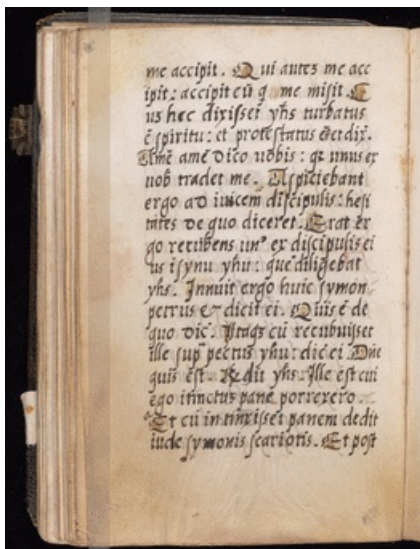 me accipit. Qui autez me acc
ipit: accipit eū q me misit. C
us hec dixisset yhs turbatus
ē spiritu: et protestatus est et dix.
Amē amē dico vobis: qz unus ex
vob tradet me. Aspiciebant
ergo ad iuicem discipulis: hesi
tātes de quo diceret. Erat er
go recubens unꝰ ex discipulis ei
us i synu yhu: quē diligebat
yhs. Innuit ergo huic symon
petrus & dicit ei. Quis ē de
quo dic. Itaqz cū recubuisset
ille sup pectus yhu: dic ei Dn̄e
quis est. Rēdit yhs. Ille est cui
ego itinctus pane porrexero.
Et cū intinxisset panem dedit
iude symonis scariotis. Et post